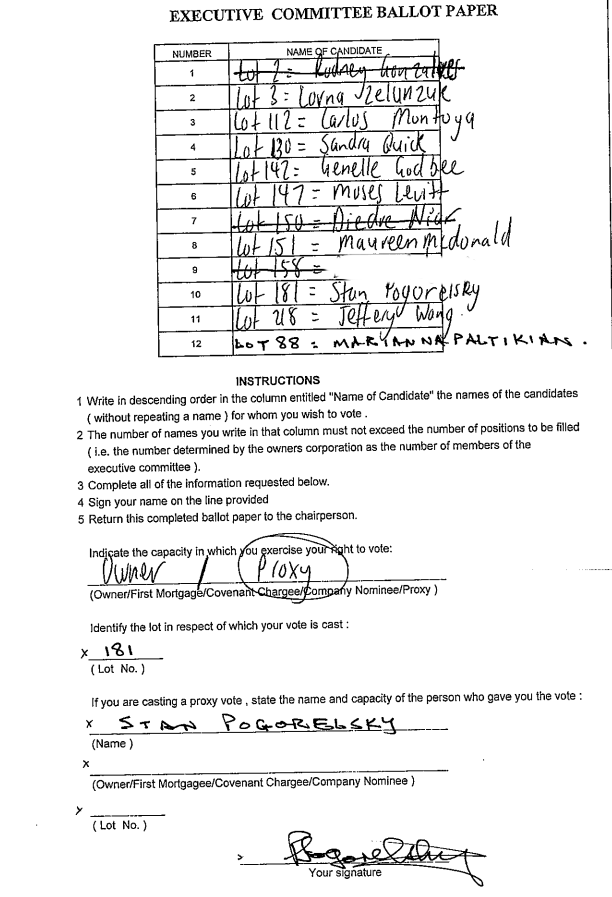 EXECUTIVE COMMITTEE BALLOT PAPER
NUMBER NAME OF CANDIDATE
1 Lot 2 = Rodney Gonzalves
2 Lot 3 = Lorna Zelunzuk
3 Lot 112 = Carlos Montoya
4 Lot 130 = Sandra Quick
5 Lot 142 = Genelle Godbee
6 Lot 147 = Moses Levitt
7 Lot 150 = Diedre
8 Lot 151 = Maureen Mcdonald
9 Lot 158 =
10 Lot 181 = Stan Pogorelsky
11 Lot 218 = Jeffery Wang
12 LOT 88 = MARYANNA PALTIKIAN.
INSTRUCTIONS
1 Write in descending order in the column entitled "Name of Candidate" the names of the candidates
( without repeating a name ) for whom you wish to vote .
2 The number of names you write in that column must not exceed the number of positions to be filled
( i.e. the number determined by the owners corporation as the number of members of the
executive committee ).
3 Complete all of the information requested below.
4 Sign your name on the line provided
5 Return this completed ballot paper to the chairperson.
Indicate the capacity in which you exercise your right to vote:
Owner / Proxy
(Owner/First Mortgage/Covenant Chargee/Company Nominee/Proxy )
Identify the lot in respect of which your vote is cast :
x 181
( Lot No. )
If you are casting a proxy vote , state the name and capacity of the person who gave you the vote :
x STAN POGORELSKY
(Name )
x
(Owner/First Mortgagee/Covenant Chargee/Company Nominee )
x
( Lot No. )
> Pogorelsky
Your signature